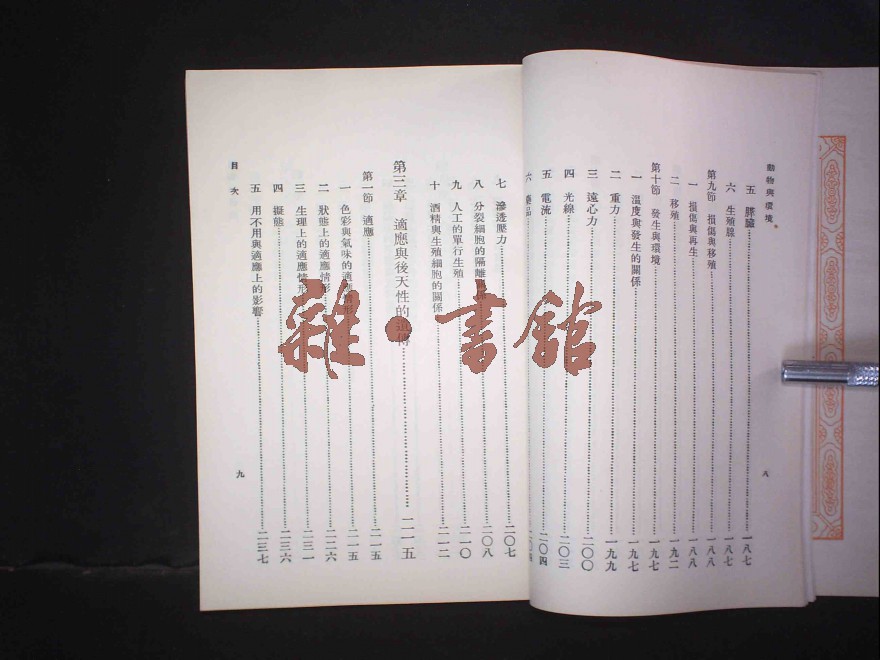 動物與環境
五 脾臟……一八七
六 生殖腺……一八七
第九節 損傷與移殖……一八八
一 損傷與再生……一八八
二 移殖……一九二
第十節 發生與環境……一九七
一 溫度與發生的關係……一九七
二 重力……一九九
三 遠心力……二〇〇
四 光線……二〇三
五 電流……二〇四
六 藥品
八
七 滲透壓力……二〇七
八 分裂細胞的隔離關係……二〇八
九 人工的單行生殖……二一〇
十 酒精與生殖細胞的關係……二一二
第三章 適應與後天性的遺傳……二一五
第一節 適應……二一五
一 色彩與氣味的適應情形……二一五
二 狀態上的適應情形……二二六
三 生理上的適應情形……二三一
四 擬態……二三六
五 用不用與適應上的影響……二三七
目次
九
雜·書館